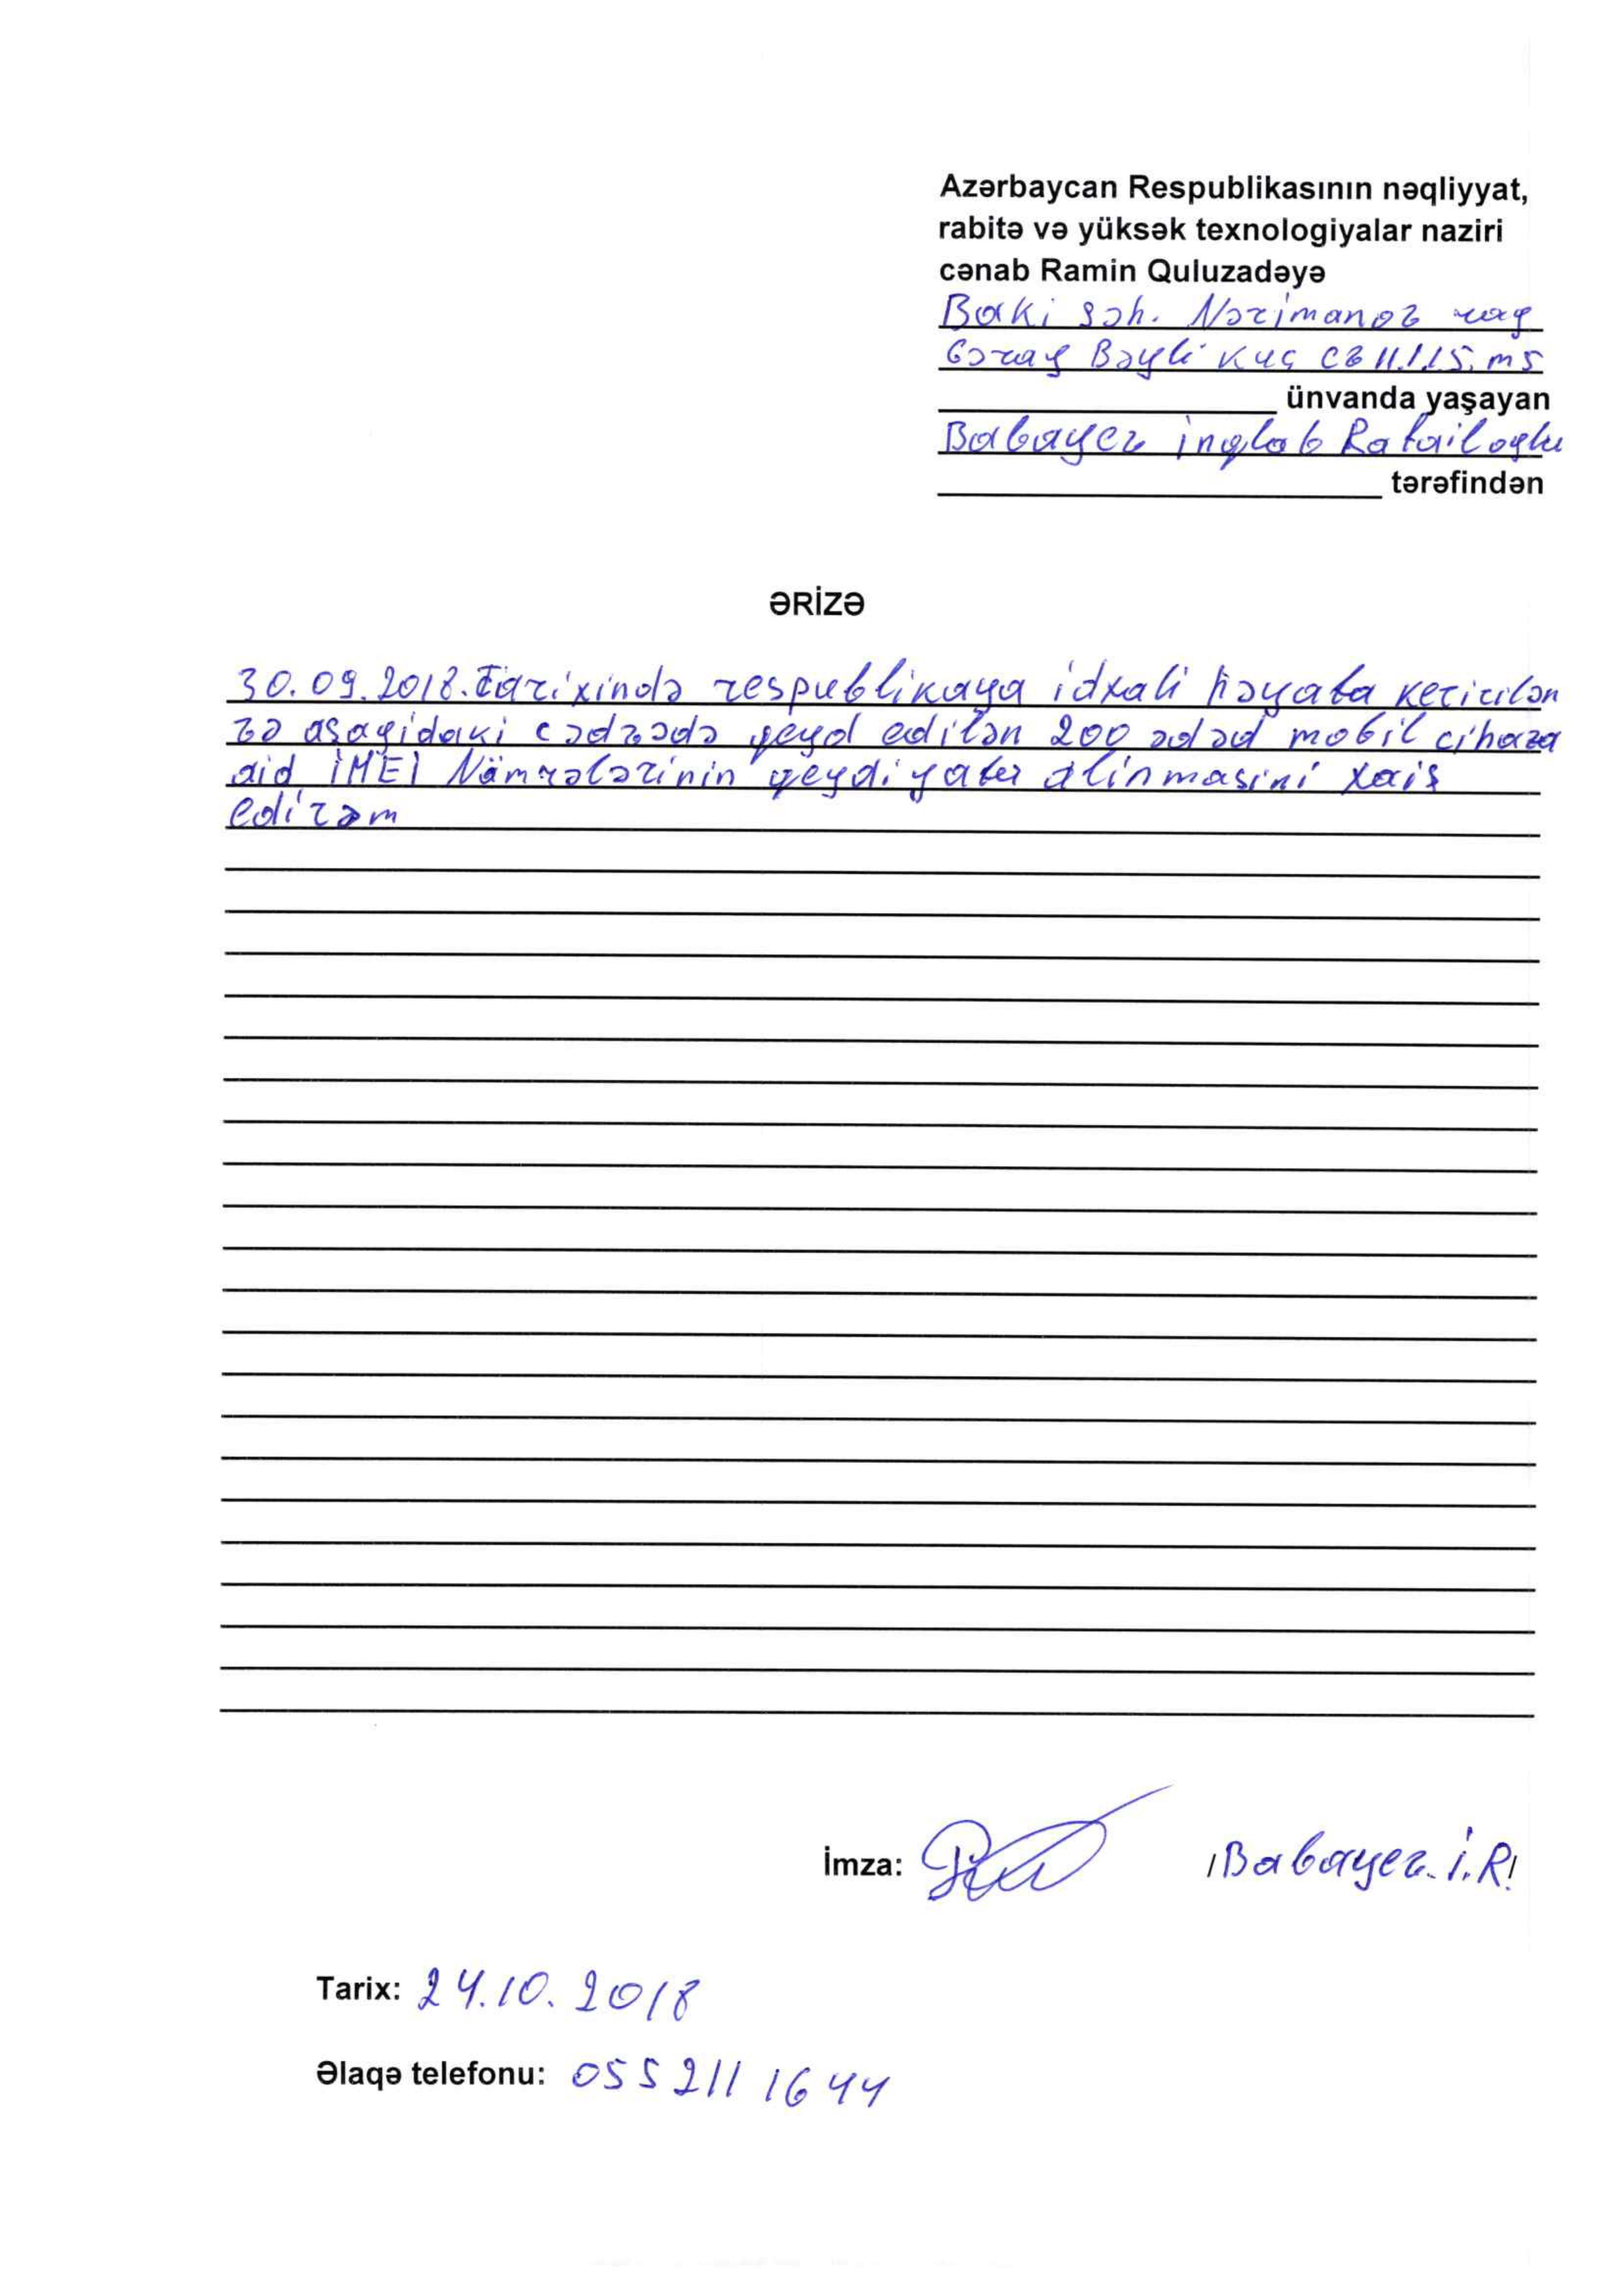 Azərbaycan Respublikasının nəqliyyat,
rabitə və yüksək texnologiyalar naziri
cənab Ramin Quluzadəyə
Baki şəh. Nərimanov ray
Gəray Bəyli küç ev 11.115. m5
ünvanda yaşayan
Babayev inqlab Rafail oglu
tərəfindən
ƏRİZƏ
30.09.2018. Tarixində respublikaya idxali həyata kecirilən
və aşagidaki cədvədə qeyd edilən 200 ədəd mobil cihaza
aid IMEI Nömrələrinin qeydiyata alinmasini xaiş
edirəm
İmza: /Babayev. i.R/
Tarix: 24.10.2018
Əlaqə telefonu: 055 211 16 44